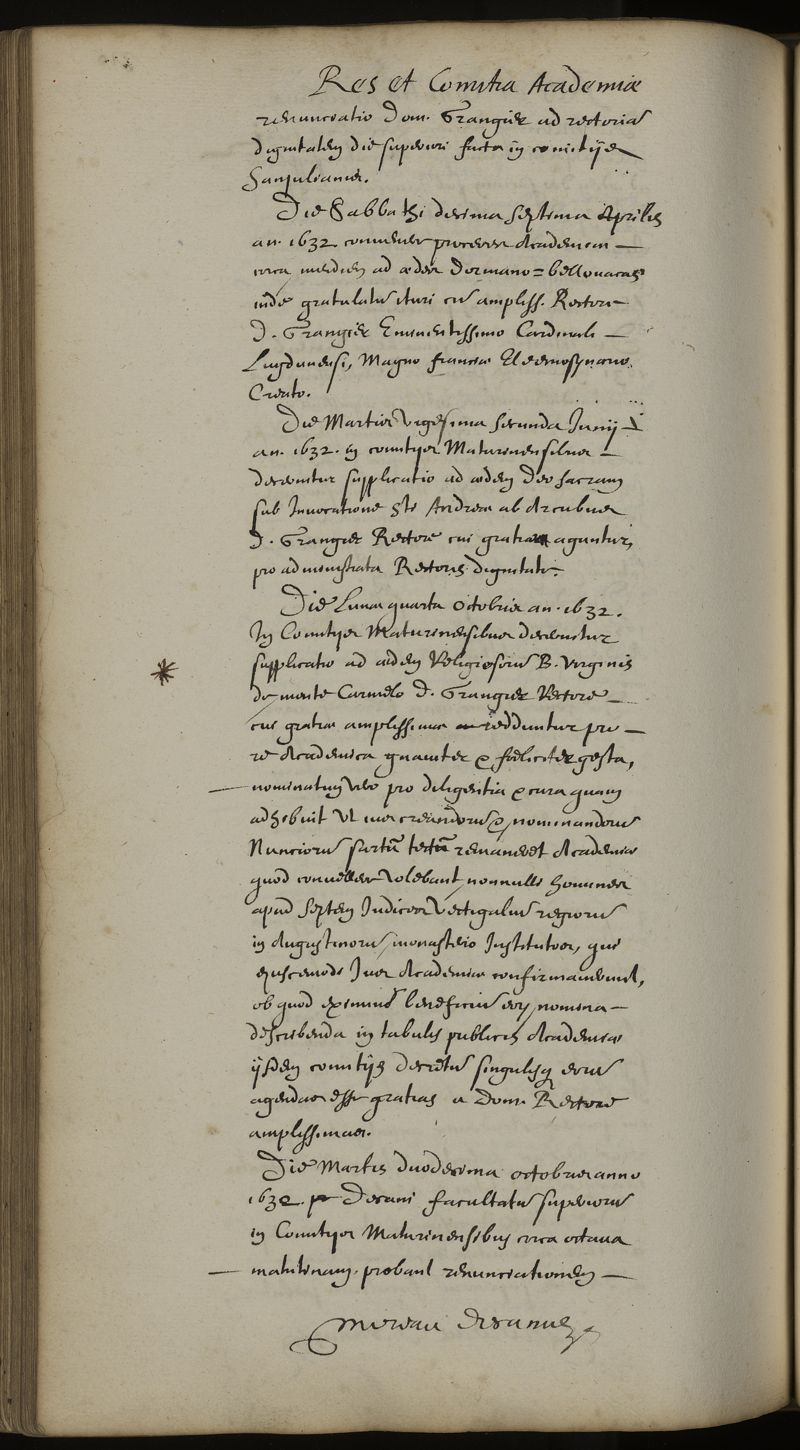 Res et Comitia Academiæ
renunciatio Dom. Grangier ad rectoriā
dignitatem die superiori facta in comitijs
Sanjulianis.
Die Sabbathi decima septima Aprilis
an. 1632 convenere proceres Academiæ —
circa meridiem ad ædes Dormano=bellouacas
inde gratulatum ituri cū ampliss. Rectore
D. Grangier Eminentissimo Cardinali —
Lugdunensi, Magno franciæ Eleemosynario
Creato.
Die Martis vigesima secunda Junij —
an. 1632. in comitijs Maturinensibus —
decernitur supplicatio ad ædem Deo sacram
sub Invocatione Sti Andreæ ab Arcubus
D. Grangier Rectore cui gratiæ aguntur,
pro administrata Rectoris dignitate.
Die Lunæ quarta Octobris an. 1632.
In Comitijs Maturinensibus decernitur
supplicatio ad ædem Religiosorū B. Virginis
de monte Carmelo D. Grangier Rectore —
cui gratiæ amplissimæ redduntur pro —
re Academica gnauiter & fœliciter gesta,
nominatim vero pro diligentia & cura quam
adhibuit vt ius creandorū & nominandorū
Nunciorū sartū tectū remaneret Academiæ
quod conuellere volebant nonnulli homines
apud septem Iudices vectigaliū regiorū
in Augustinorū monasterio Institutos, qui
eiuscemodi Ius Academiæ confirmauerunt,
ob quod eximiū beneficiū eorū nomina —
describenda in tabulis publicis Academiæ
ijsdem comitijs decretū singulisq eorū
agendas esse gratias a Dom. Rectore
amplissimas.
Die Martis duodecima octobris anno
1632. Decani facultatū superiorū
in Comitijs Maturinensibus circa octaua
matutinam. probant renunciationem —
Moreau Decanus